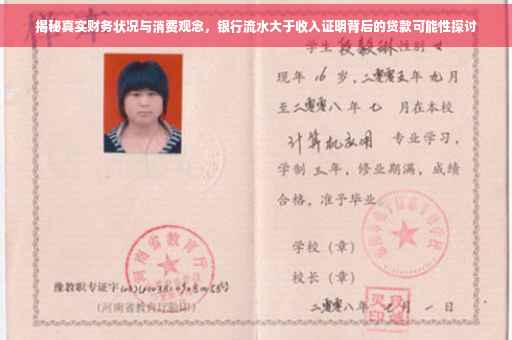 揭秘真实财务状况与消费观念，银行流水大于收入证明背后的贷款可能性探讨
学生 段毅琳 性别 女
现年 16 岁，二零零五年 九月
至二零零八年 七 月在本校
计算机应用 专业学习，
学制 三 年，修业期满，成绩
合格，准予毕业
学校（章）
校长（章）
二零零八年 七 月 一 日
河南省教育厅
豫教职专证字
（河南省教育厅验印）